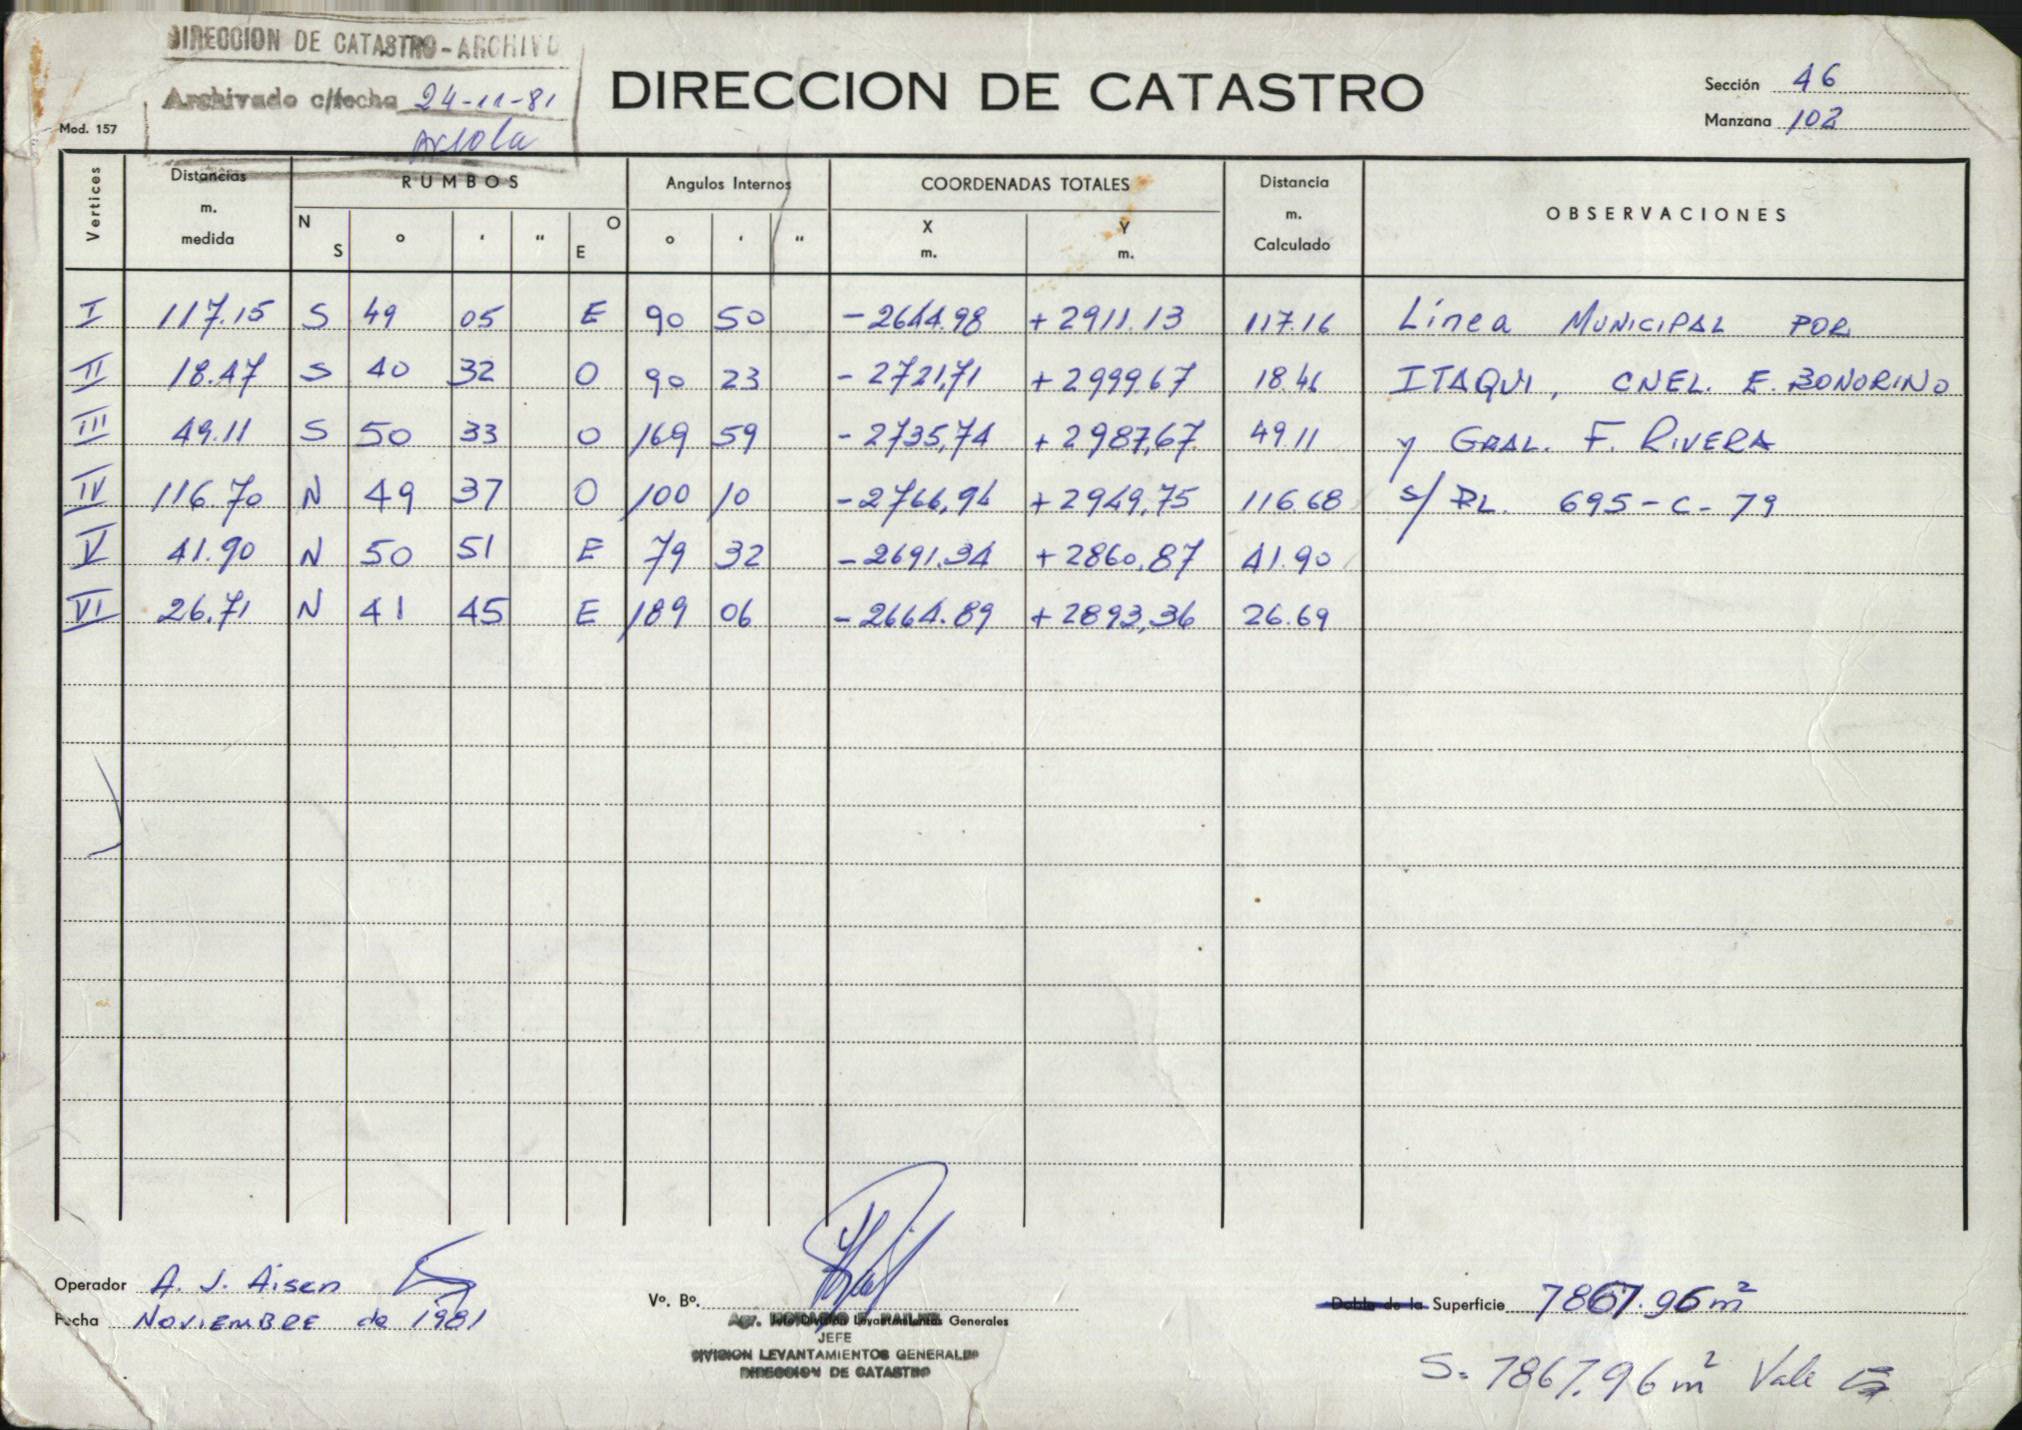 DIRECCION DE CATASTRO - ARCHIVO
Archivado c/fecha 24-11-81
Mod. 157
DIRECCION DE CATASTRO
Sección 46
Manzana 102
Vertices Distancias m. medida RUMBOS N S ° ' " O E Angulos Internos ° ' " COORDENADAS TOTALES X m. Y m. Distancia m. Calculado OBSERVACIONES
I 117.15 S 49 05 E 90 50 -2644.98 +2911.13 117.16 Línea MUNICIPAL POR
II 18.47 S 40 32 O 90 23 -2721,71 +2999.67 18.46 ITAQUI, CNEL. E. BONORINO
III 49.11 S 50 33 O 169 59 -2735,74 +2987,67 49.11 y GRAL. F. RIVERA
IV 116.70 N 49 37 O 100 10 -2766,94 +2949,75 116.68 s/ PL. 695-C-79
V 41.90 N 50 51 E 79 32 -2691.34 +2860.87 41.90
VI 26.71 N 41 45 E 189 06 -2664.89 +2893,36 26.69
Operador A. J. Aisen
Fecha NOVIEMBRE de 1981
Vº. Bº.
Jefe División Levantamientos Generales
JEFE
DIVISION LEVANTAMIENTOS GENERALES
DIRECCION DE CATASTRO
Doble de la Superficie 7867.96 m²
S= 7867.96 m² Vale